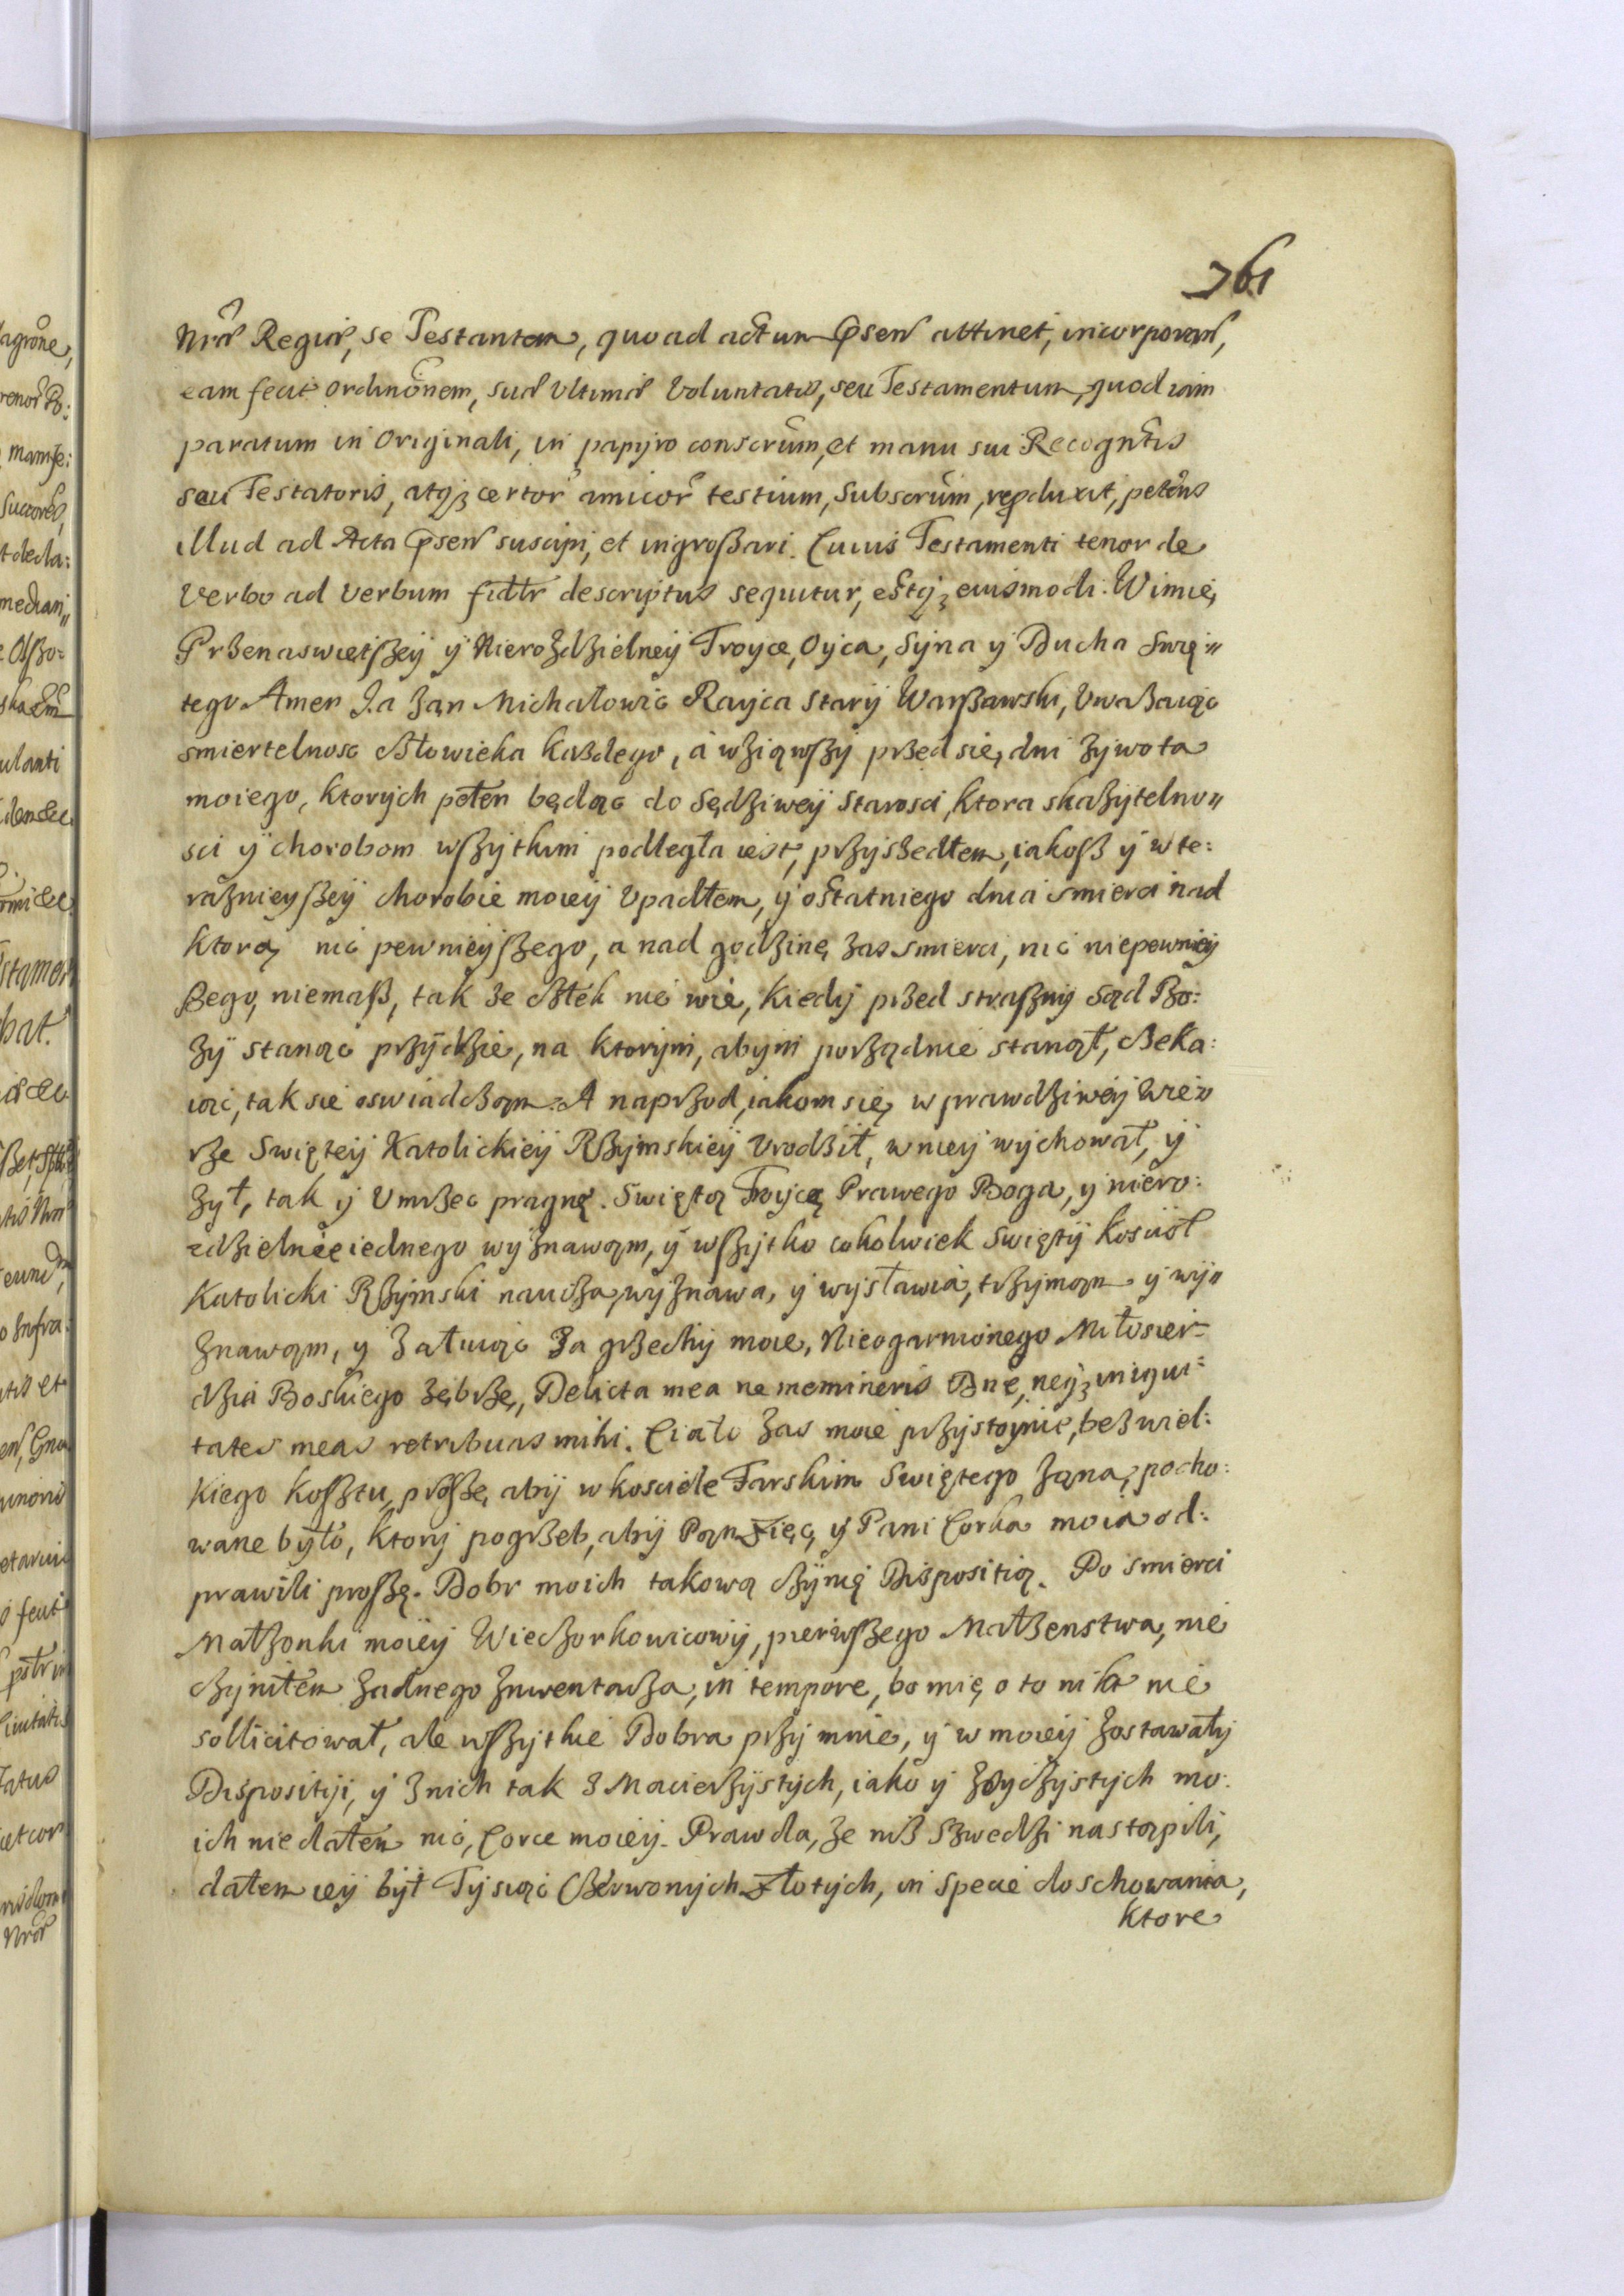 761
Nrae Regiae, se Testantem, quoad actum pnsen attinet, incorporan,
eam fecit Ordinonem, suae Ultimae Voluntatis, seu Testamentum, quod iam
paratum in Originali, in papyro conscrum, et manu sui Recogntis
seu Testatoris, atqз certor amicor testium, subscrum, reproduxit, petens
illud ad Acta pnsen suscipi, et ingroßari. Cuius Testamenti tenor de
Verbo ad Verbum fidlr descriptus sequitur, estqз eiusmodi. W imię
Przenaswietszey y Nierozdzielney Troyce, Oyca, Syna y Ducha Swię//
tego Amen Ja Jan Michałowic Rayca Stary Warßawski, Uważaiąc
smiertelnosc człowieka kazdego, á wziąwszy przed się, dni zywota
moiego, ktorych pełen będąc do Sędziwey Starosci, ktora skazytelno//
sci y chorobom wszytkim podległa iest, przyszedłem, iakosz y w te:
raznieyßey chorobie moiey Upadłem, y ostatniego dnia smierci nad
ktorą nic pewnieyszego, a nad godzinę zas smierci, nic niepewniey
ßego, niemasz, tak ze człek nie wie, kiedy przed straszny Sąd Bo:
zy stanąc przydzie, na ktorym, abym porządnie stanął, czeka:
iąc, tak sie oswiadczam. A naprzod, iakom się w prawdziwey Wie//
rze Swiętey Katolickiey Rzymskiey Urodził, w niey wychował, y
zył, tak y Umrzec pragnę. Swiętą Troycę Prawego Boga, y niero:
zdzielnie iednego wyznawam, y wszytko cokolwiek Swięty Koscioł
Katolicki Rzymski naucza, wyznawa, y wysławia, trzymam y wy//
znawam, y załuiąc za grzechy moie, Nieogarnionego Miłosier=
dzia Boskiego zebrzę, Delicta mea ne memineris Dne, neqз iniqui=
tates meas retribuas mihi. Ciało zas moie przystoynie, bez wiel:
kiego kosztu, proszę, aby w kosciele Farskim Swiętego Jana, pocho:
wane było, ktory pogrzeb, aby Pan Zięc, y Pani Corka moia od:
prawili proszę. Dobr moich takową czynię Dispositią. Po smierci
Małzonki moiey Wieczorkowicowy, pierwszego Małzenstwa, nie
czyniłem zadnego Inwentarza, in tempore, bo mię o to nikt nie
sollicitował, ale wszytkie Dobra przy mnie, y w moiey zostawały
Dispositiji, y z nich tak z Macierzystych, iako y z Oyczystych mo:
ich nie dałem nic, Corce moiey. Prawda, ze niz Szwedzi nastąpili,
dałem iey był Tysiąc Czerwonych Złotych, in specie do schowania,
ktore